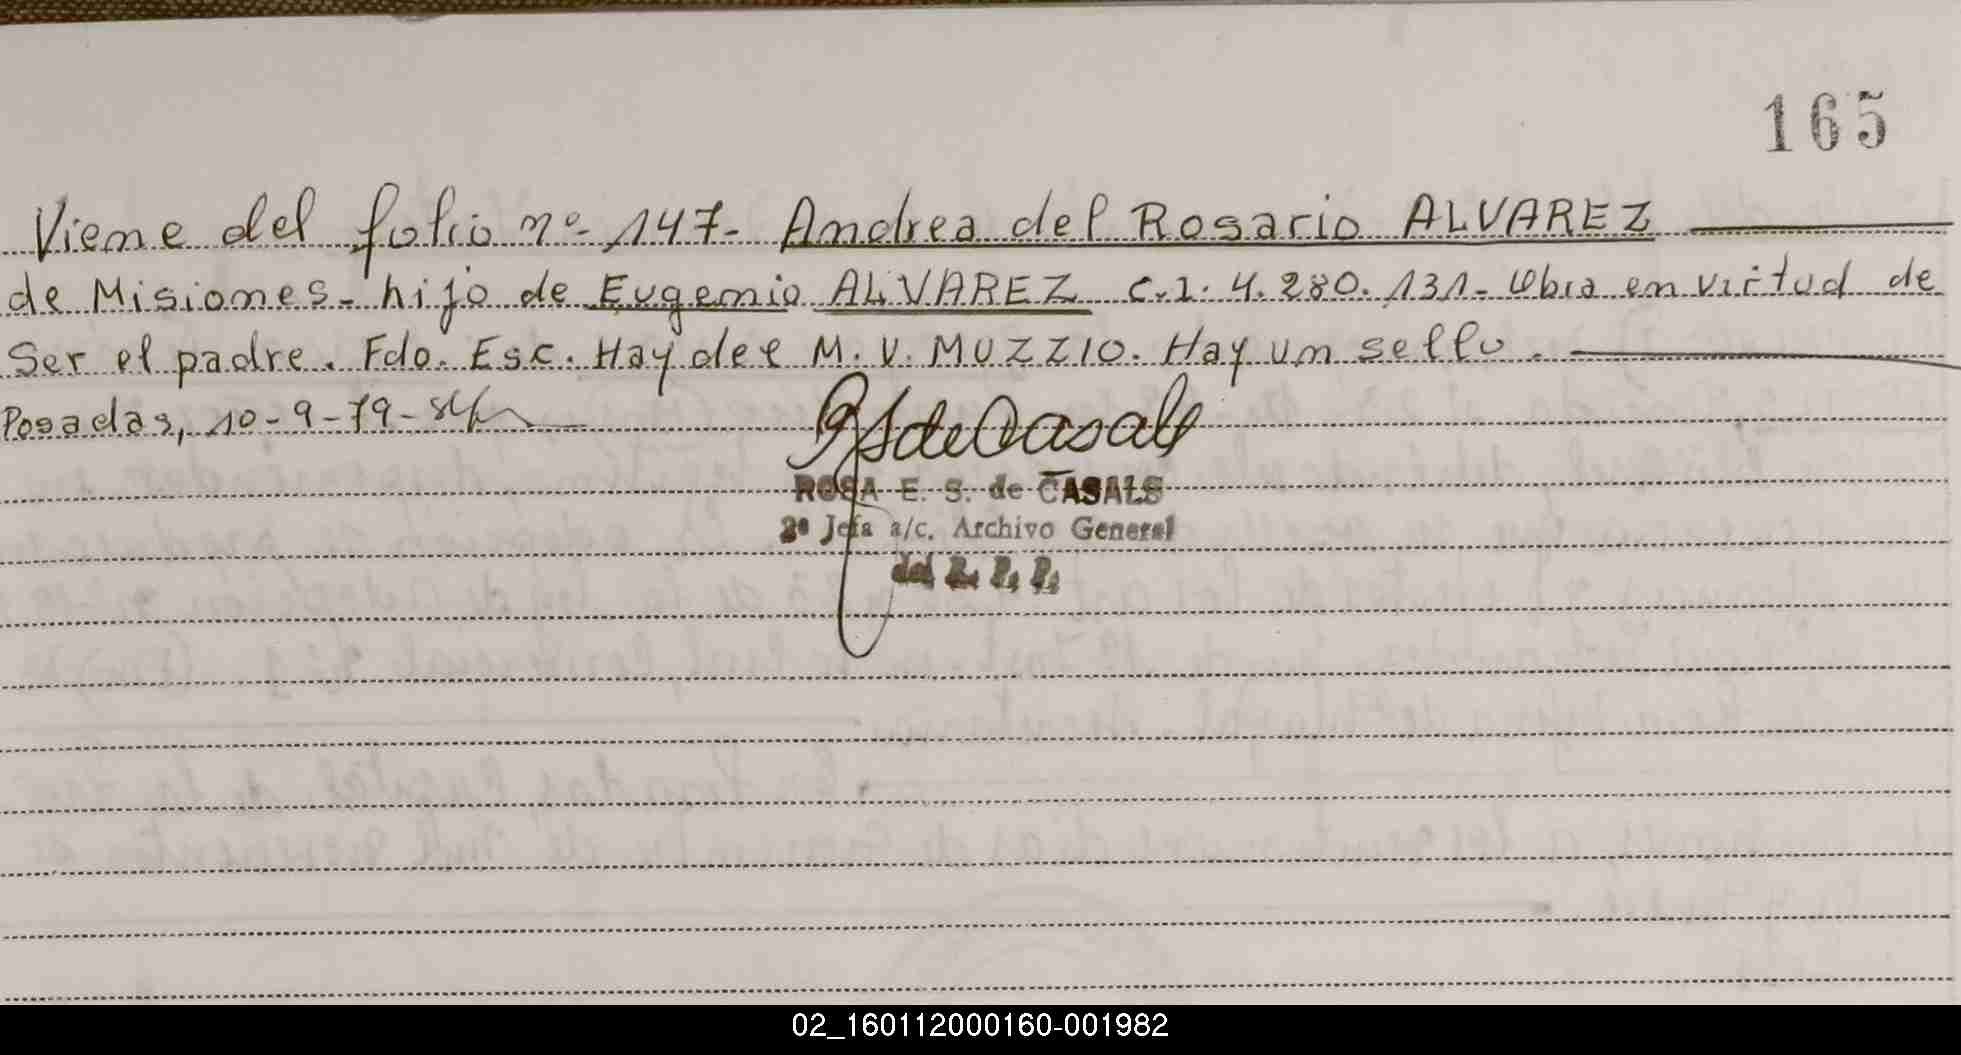 165
Viene del folio nº 147- Andrea del Rosario ALVAREZ
de Misiones- hijo de Eugenio ALVAREZ C.I. 4.280.131- Obra en virtud de
Ser el padre. Fdo. Esc. Haydee M. V. MUZZIO. Hay un sello.
Posadas, 10-9-79-
ROSA E. S. de CASALS
2ª Jefa a/c. Archivo General
del R. P. P.
02_160112000160-001982